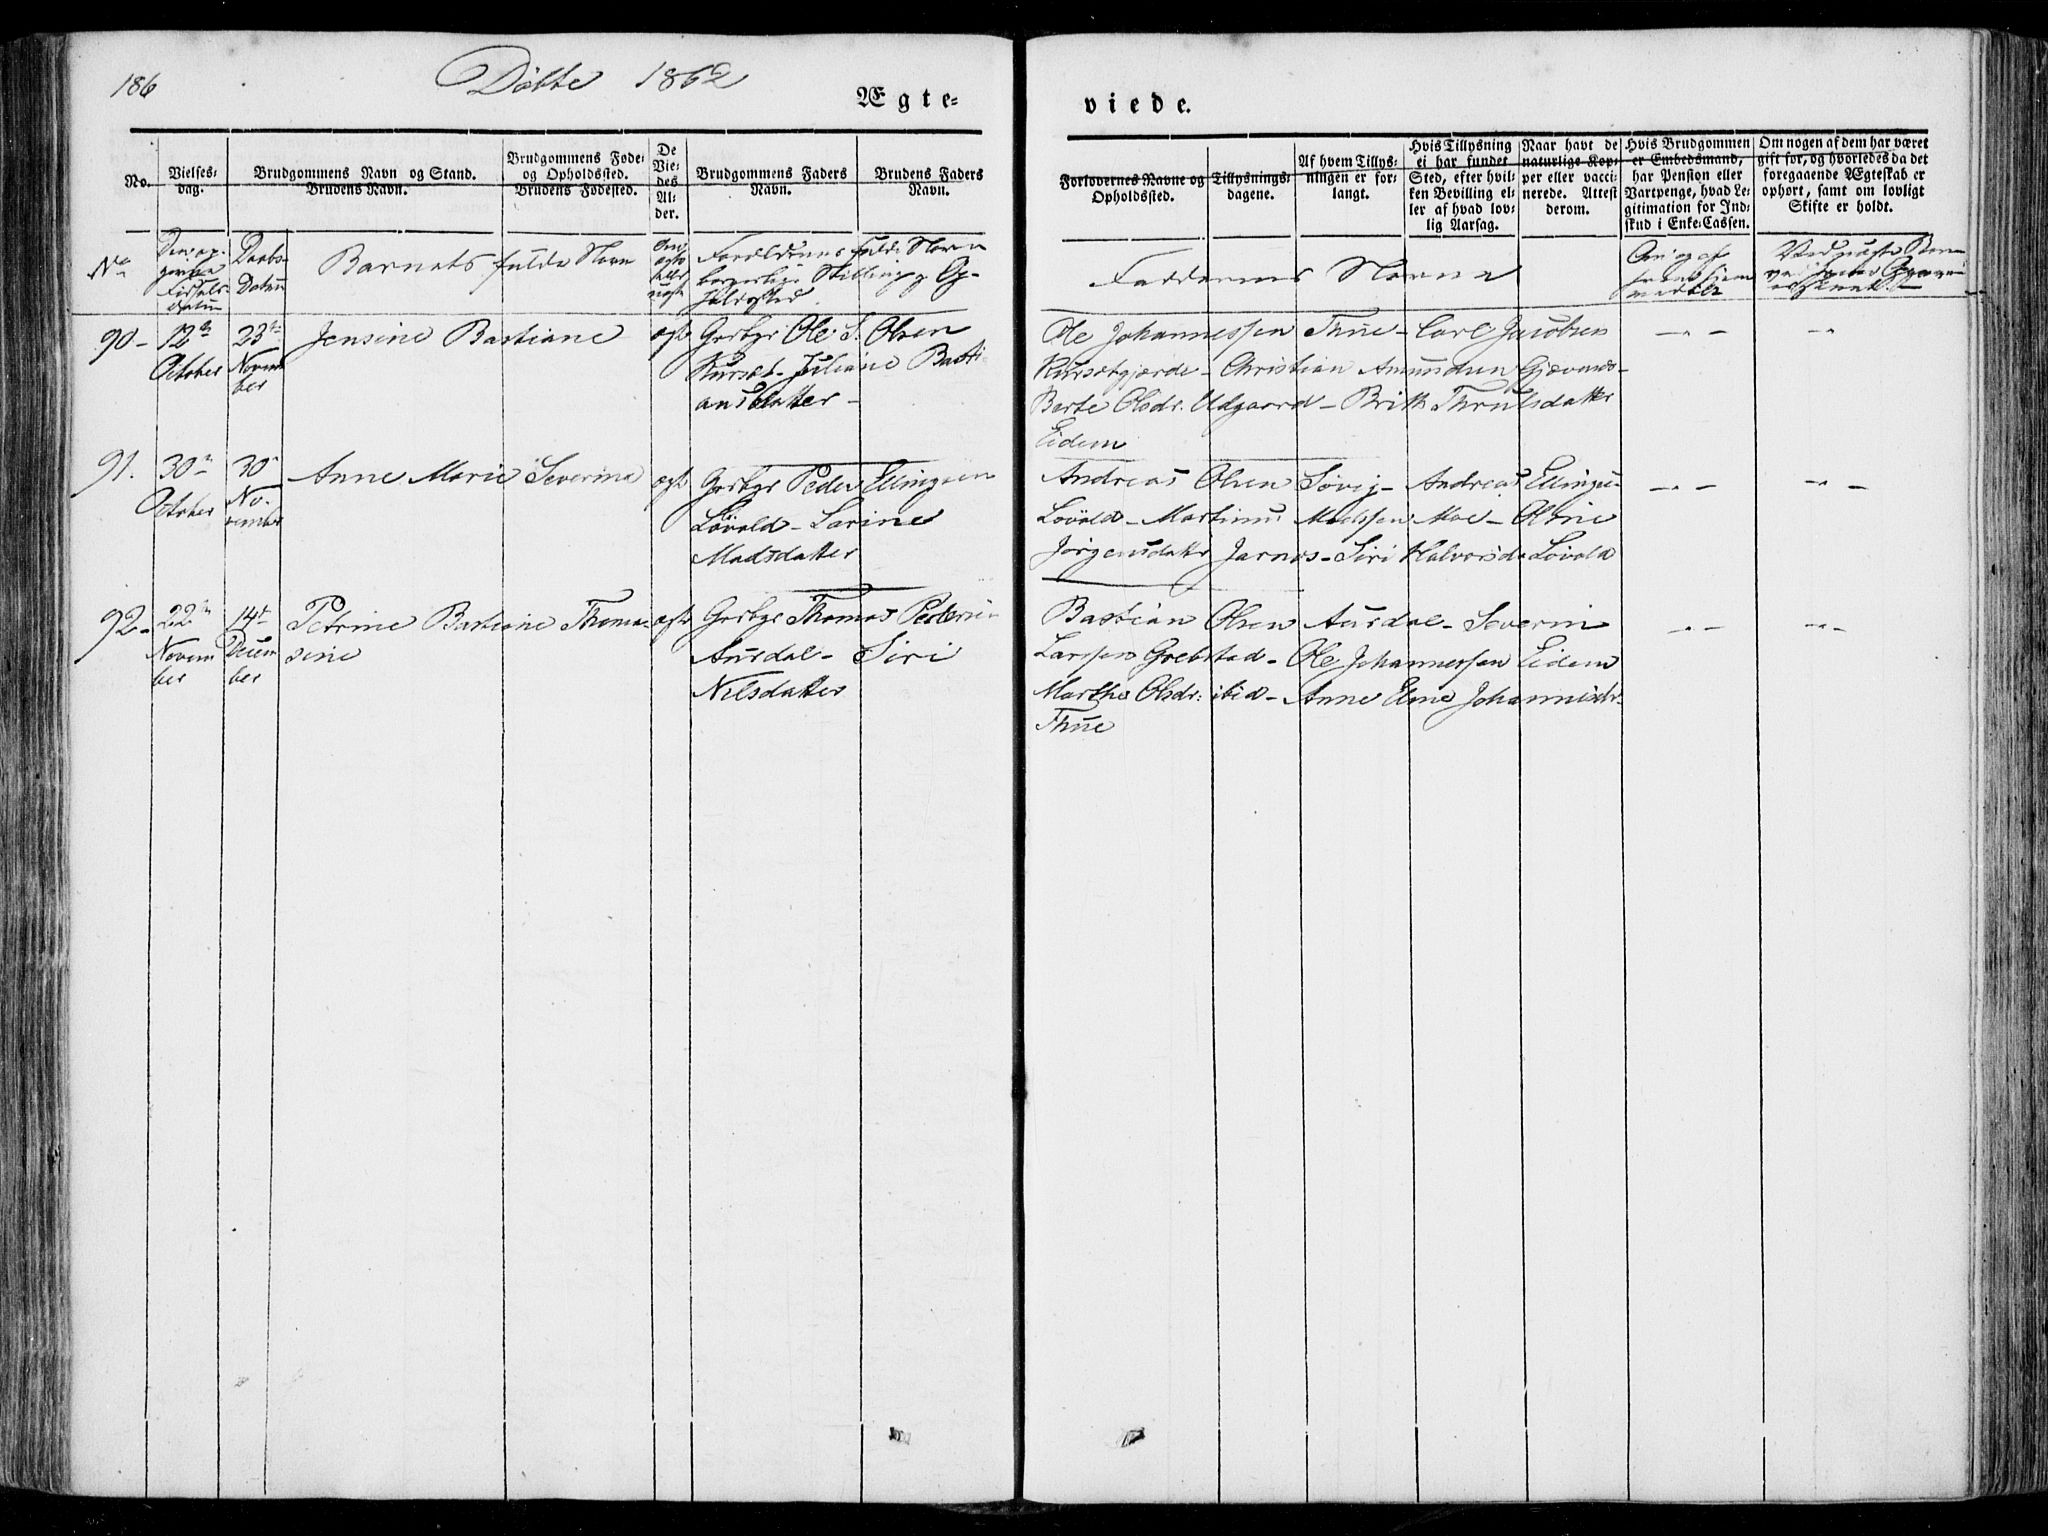 186
Döbte 1862
Ægte-
viede.
No.
Vielses-
dag.
Brudgommens Navn og Stand.
Brudens Navn.
Brudgommens Føde-
og Opholdssted.
Brudens Fødested.
De
Vie-
des
Al-
der.
Brudgommens Faders
Navn.
Brudens Faders
Navn.
Forlovernes Navne og
Opholdssted.
Tillysnings-
dagene.
Af hvem Tillys-
ningen er for-
langt.
Hvis Tillysning
ei har fundet
Sted, efter hvil-
ken Bevilling el-
ler af hvad lov-
lig Aarsag.
Naar havt de
naturlige Kop-
per eller vacci-
nerede. Attest
derom.
Hvis Brudgommen
er Embedsmand,
har Pension eller
Vartpenge, hvad Le-
gitimation for Ind-
skud i Enke-Cassen.
Om nogen af dem har været
gift før, og hvorledes da det
foregaaende Ægteskab er
ophørt, samt om lovligt
Skifte er holdt.
No
Den op-
givne
Fødsels-
datum
Daabs-
Datum
Barnets fulde Navn
Om
ægte
eller
uægte
Forældrenes fulde Navn
borgerlige Stilling og Op-
holdssted.
Faddernes Navne
Om og af
hvem hjem-
medøbt
90-
12te
October
23de
Novem
ber
Jensine Bastiane
ægte
Grdbgr Ole S. Olsen
Kursæt- Juliane Basti-
ansdatter-
Ole Johannessen Thue- Carl Jacobsen
Kursætgjærde- Christian Amundsen Gjævenes-
Berte Olsdr. Udgaard- Brith Thrulsdatter
Eidem
91.
30te
October
30te
No-
vember
Anne Marie Severina
ægte
Grdbgr Peder Ellingsen
Løvold- Sarine
Madsdatter
Andreas Olsen Søvig- Andreas Ellings-
Løvold- Martinus Madssen Moe- Oline
Jørgensdatter Jarnes- Siri Halvorsda Løvold
92-
22de
Novem
ber
14de
Decem
ber
Petrine Bastiane Thoma-
sine
ægte
Grdbgr Thomas Pedersen
Aursdal- Siri
Nilsdatter
Bastian Olsen Aursdal- Severin
Larssen Grebstad- Ole Johannessen Eidem
Marthe Olsdr: ibid- Anne Elene Johannesdr.
Thue